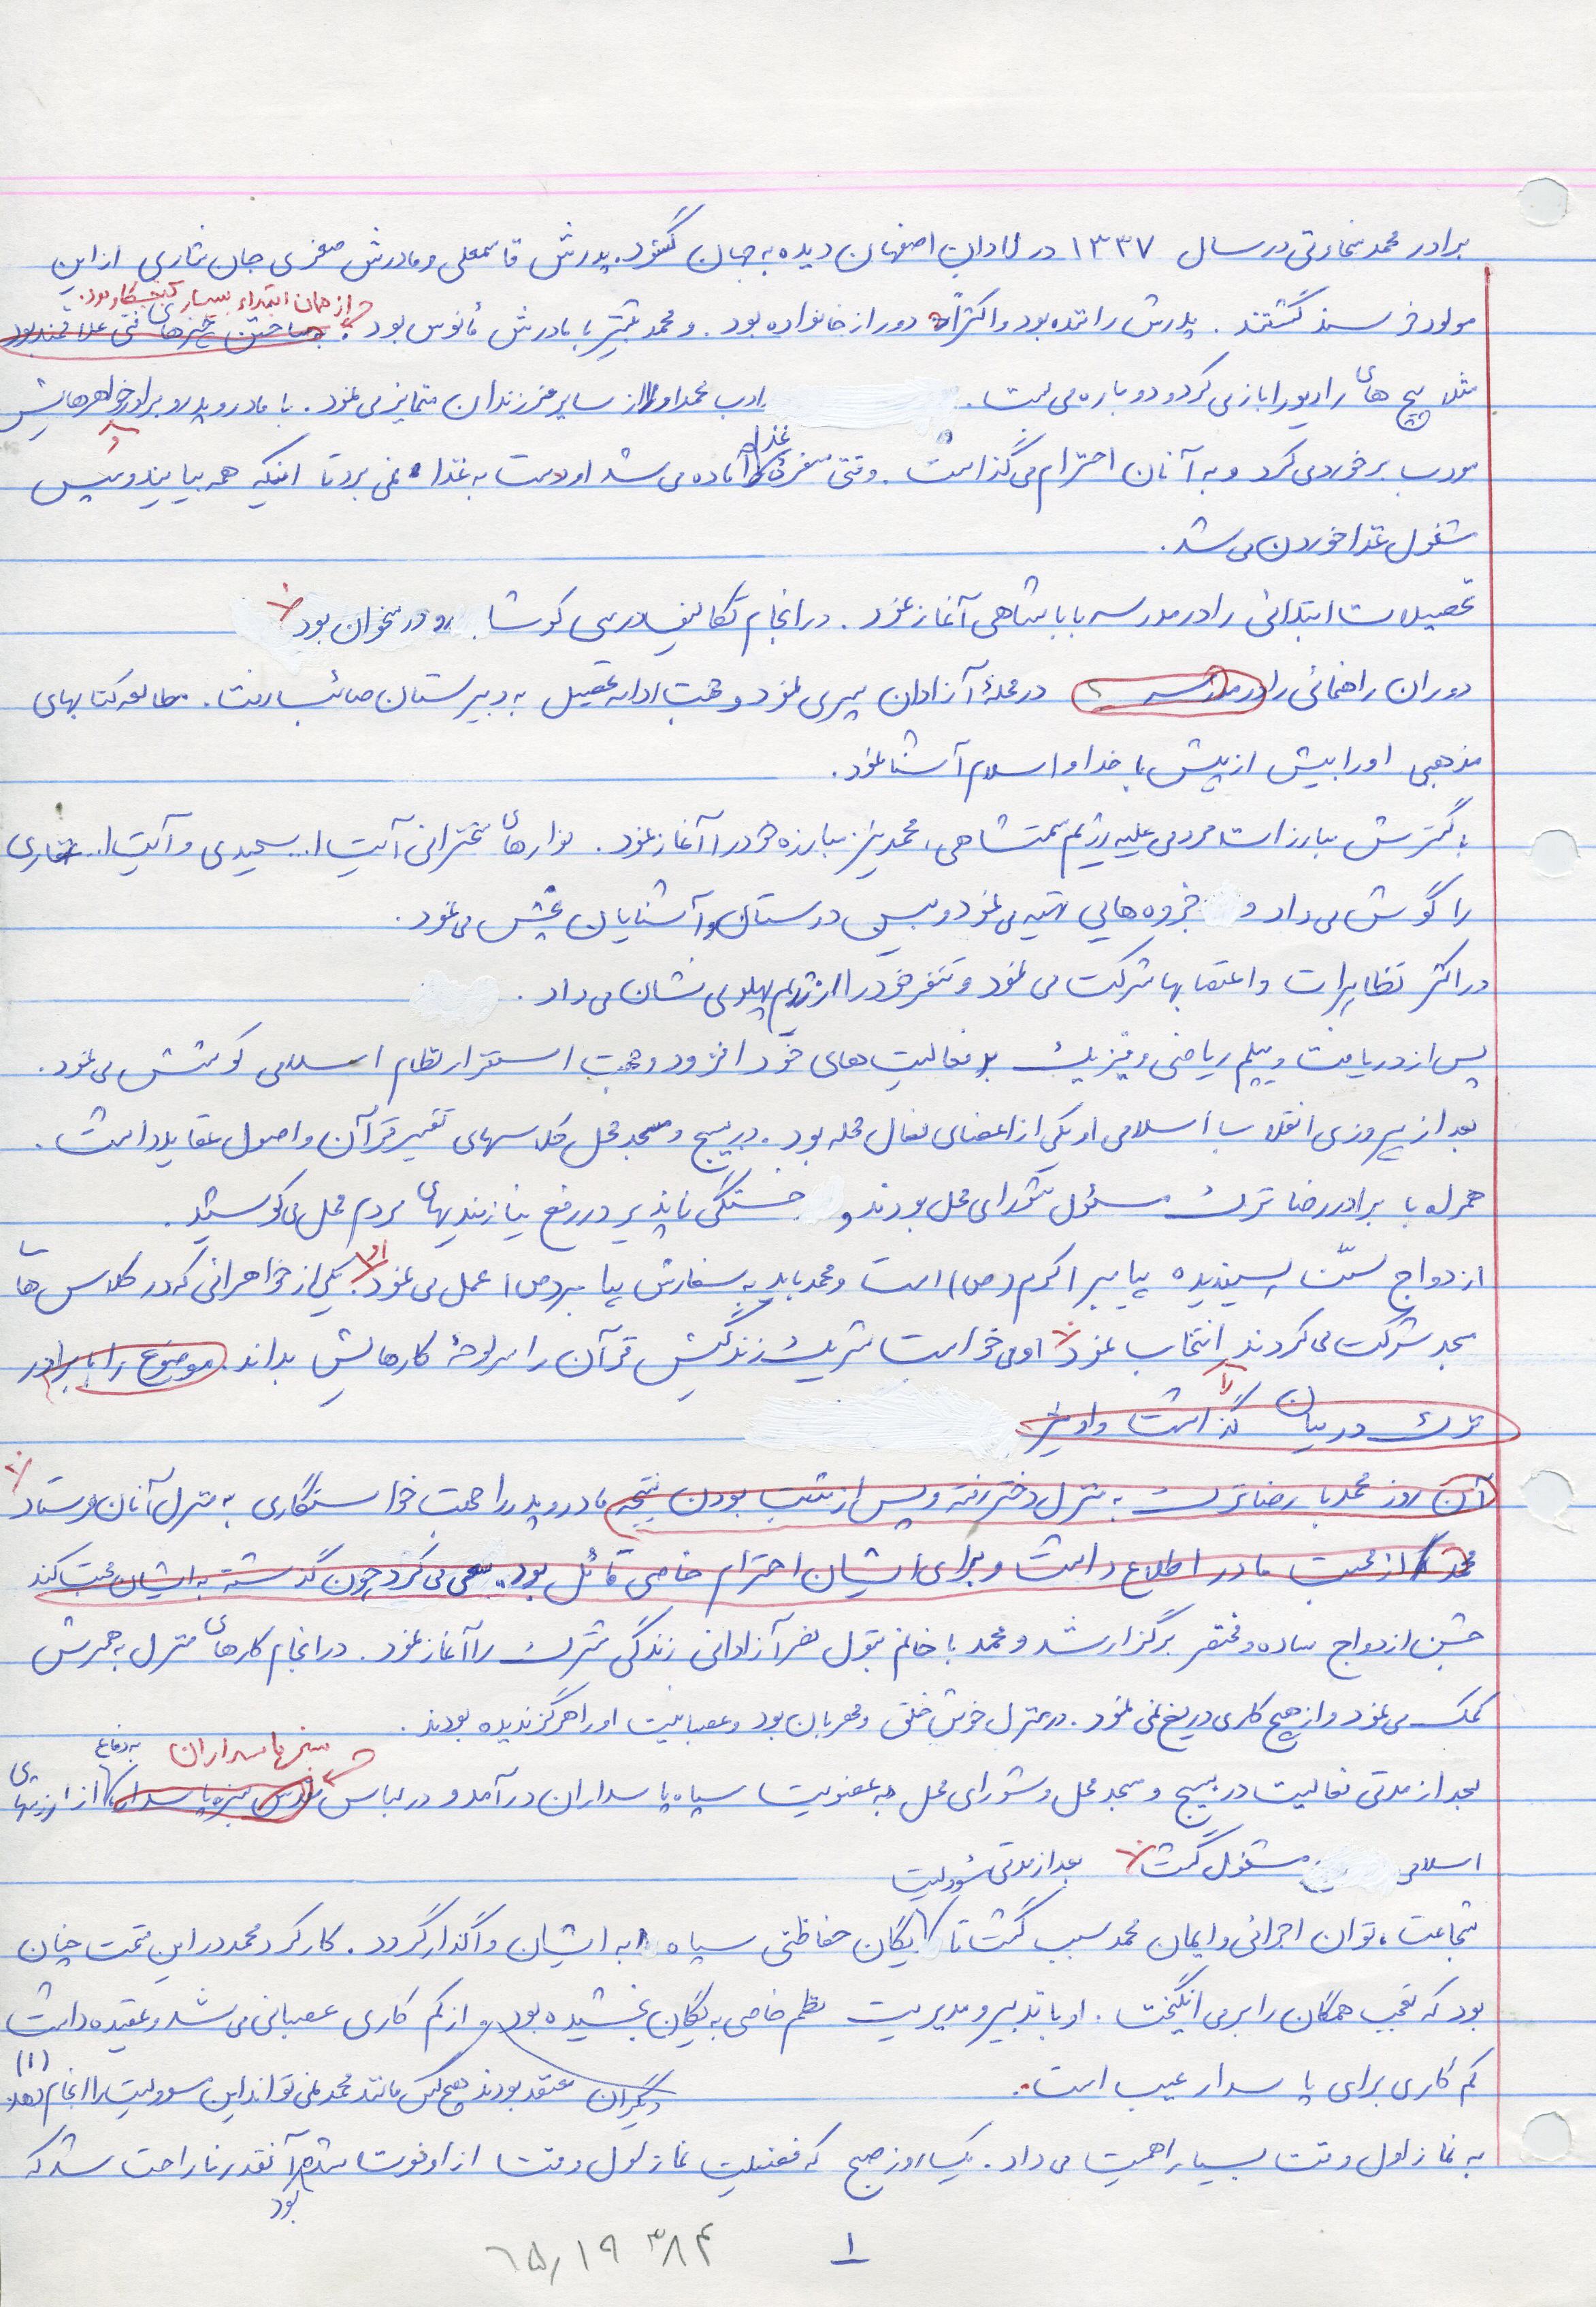 برادر محمد سخاوتی در سال ۱۳۳۷ در لادان اصفهان دیده به جهان گشود. پدرش قاسمعلی و مادرش صغری جان نثاری از این
از همان ابتداء بسیار کنجکاو بود.
مولود خرسند گشتند. پدرش راننده بود و اکثراً دور از خانواده بود. و محمد بیشتر با مادرش مأنوس بود. به ساختن چیزهای فنی علاقمند بود
مثلا پیچ های رادیو را باز می کرد و دوباره می بست. ادب محمد او را از سایر فرزندان متمایز می نمود. با مادر و پدر و برادر و خواهرهایش
مودب برخورد می کرد و به آنان احترام می گذاشت. وقتی سفرهٔ غذا آماده می شد او دست به غذا نمی برد تا اینکه همه بیایند و سپس
مشغول غذا خوردن می شد.
تحصیلات ابتدائی را در مدرسه باباشاهی آغاز نمود. در انجام تکالیف درسی کوشا و درسخوان بود.
دوران راهنمائی را در مدرسه ؟ در محلهٔ آزادان سپری نمود و جهت ادامه تحصیل به دبیرستان صائب رفت. مطالعه کتابهای
مذهبی او را بیش از پیش با خدا و اسلام آشنا نمود.
با گسترش مبارزات مردمی علیه رژیم ستمشاهی، محمد نیز مبارزه خود را آغاز نمود. نوارهای سخنرانی آیت ا.. سعیدی و آیت ا.. غفاری
را گوش می داد و جزوه هایی تهیه می نمود و بین دوستان و آشنایان پخش می نمود.
در اکثر تظاهرات و اعتصابها شرکت می نمود و تنفر خود را از رژیم پهلوی نشان می داد.
پس از دریافت دیپلم ریاضی و فیزیک بر فعالیت های خود افزود و جهت استقرار نظام اسلامی کوشش می نمود.
بعد از پیروزی انقلاب اسلامی او یکی از اعضای فعال محله بود. در بسیج و مسجد محل کلاسهای تفسیر قرآن و اصول عقاید داشت.
همراه با برادر رضا ترک مسئول شورای محل بودند و خستگی ناپذیر در رفع نیازمندیهای مردم محل می کوشید.
ازدواج سنّت پسندیده پیامبر اکرم (ص) است و محمد باید به سفارش پیامبر (ص) عمل می نمود. او یکی از خواهرانی که در کلاس های
مسجد شرکت می کردند را انتخاب نمود. او می خواست شریک زندگیش قرآن را سرلوحهٔ کارهایش بداند. موضوع را با برادر
ترک در میان گذاشت و او نیز
آن روز محمد با رضا ترک به منزل دختر رفته و پس از مثبت بودن نتیجه مادر و پدر را جهت خواستگاری به منزل آنان فرستاد.
محمد از محبت مادر اطلاع داشت و برای ایشان احترام خاصی قائل بود. سعی می کرد چون گذشته به ایشان محبت کند
جشن ازدواج ساده و مختصر برگزار شد و محمد با خانم بتول نصر آزادانی زندگی مشترک را آغاز نمود. در انجام کارهای منزل به همسرش
کمک می نمود و از هیچ کاری دریغ نمی نمود. در منزل خوش خلق و مهربان بود و عصبانیت او را هرگز ندیده بودند.
سبز پاسداران به دفاع
بعد از مدتی فعالیت در بسیج و مسجد محل و شورای محل به عضویت سپاه پاسداران در آمد و در لباس مقدس سبز پاسدار از ارزشهای
اسلامی مشغول گشت. بعد از مدتی مسؤولیت
شجاعت، توان اجرائی و ایمان محمد سبب گشت تا یگان حفاظتی سپاه به ایشان واگذار گردد. کارکرد محمد در این قسمت چنان
بود که تعجب همگان را بر می انگیخت. او با تدبیر و مدیریت نظم خاصی به یگان بخشیده بود و از کم کاری عصبانی می شد و عقیده داشت
کم کاری برای پاسدار عیب است. دیگران معتقد بودند هیچ کس مانند محمد نمی تواند این مسوولیت را انجام دهد. (۱)
به نماز اول وقت بسیار اهمیت می داد. یک روز صبح که فضیلت نماز اول وقت از او فوت شده بود آنقدر ناراحت شد که
۱
۶۵,۱۹ ۳۸۴